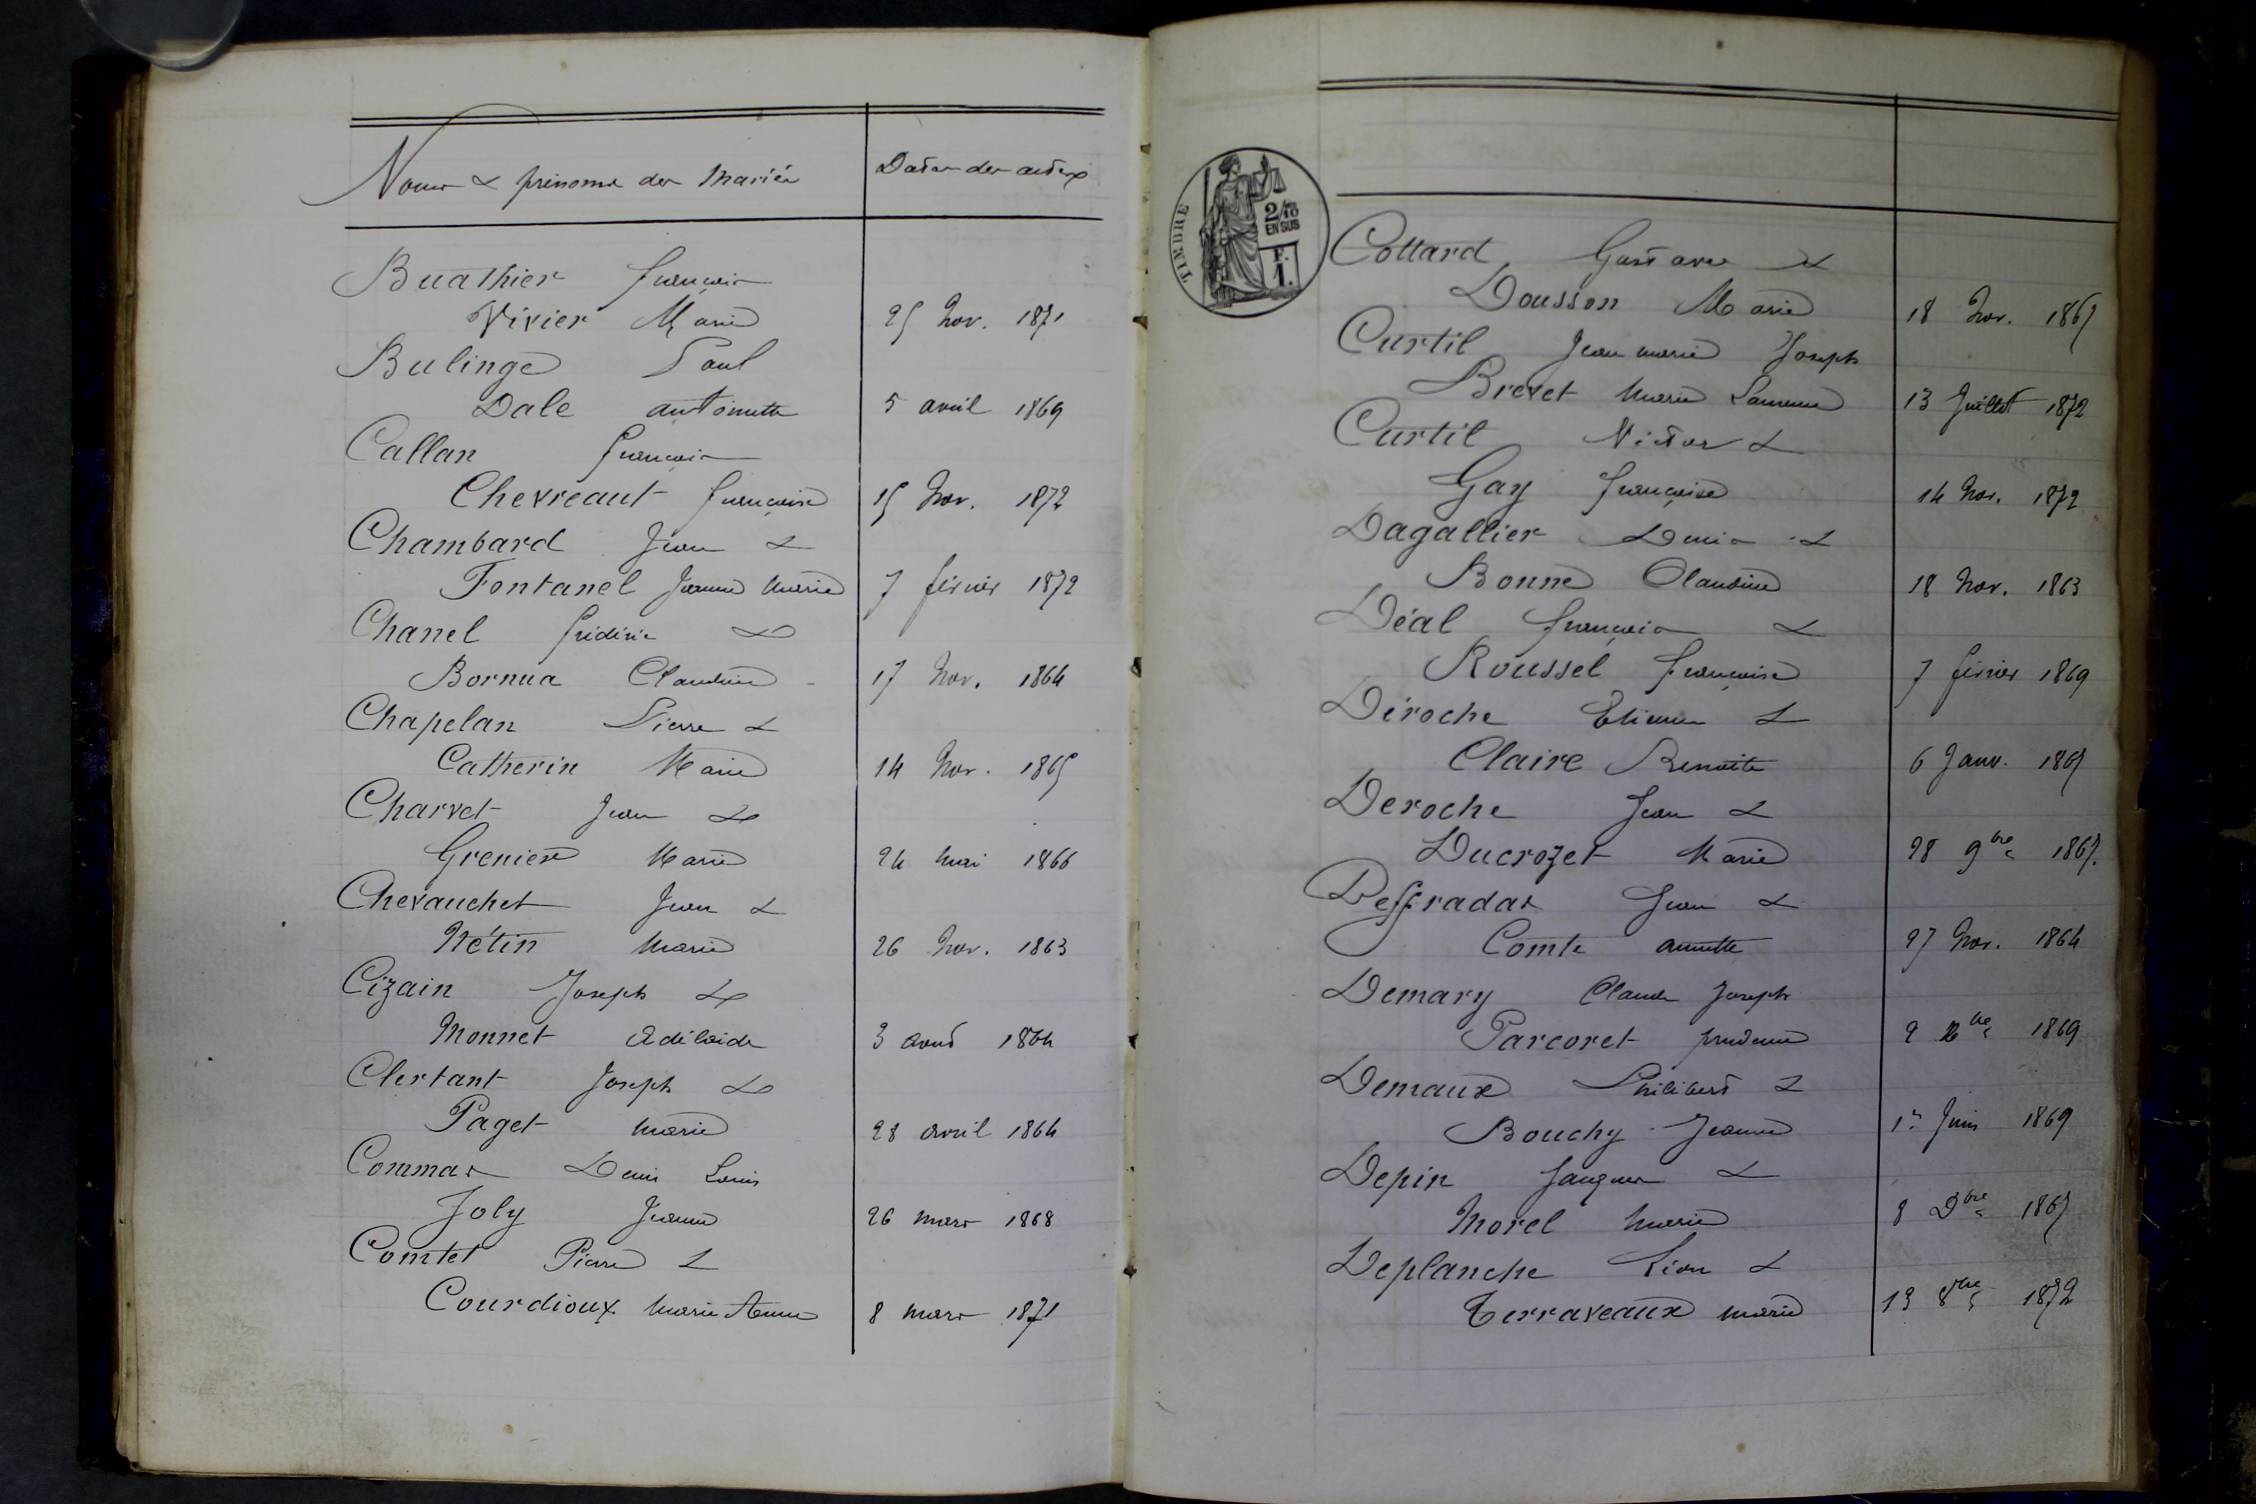 Noms & prénoms des Mariés
Dates des actes
Buathier françois
Vivier Marie 25 Nov. 1871
Bulinge Paul
Dale antoinette 5 avril 1869
Callan françois
Chevreaut françoise 15 Nov. 1872
Chambard Jean &
Fontanel Jeanne Marie 7 février 1872
Chanel frédéric &
Bornua Claudine 17 Nov. 1864
Chapelan Pierre &
Catherin Marie 14 Nov. 1865
Charvet Jean &
Grenier Marie 24 Mai 1866
Chevauchet Jean &
Nétin Marie 26 Nov. 1863
Cizain Joseph &
Monnet Adélaïde 3 août 1864
Clertant Joseph &
Paget Marie 28 avril 1864
Commas Denis Louis
Joly Jeanne 26 mars 1868
Comtet Pierre &
Courdioux Marie Anne 8 mars 1871
TIMBRE
2/10
EN SUS
F.
1.
Cottard Gustave &
Dousson Marie 18 Nov. 1867
Curtil Jean marie Joseph
Brevet Marie Laurence 13 Juillet 1872
Curtil Victor &
Gay françoise 14 Nov. 1872
Dagallier Denis &
Bonne Claudine 18 Nov. 1863
Déal françois &
Roussel françoise 7 février 1869
Déroche Etienne &
Claire Benoite 6 Janv. 1867
Deroche Jean &
Ducrozet Marie 28 9bre 1867.
Deffradas Jean &
Comte annette 27 Nov. 1864
Demary Claude Joseph
Parcoret prudence 2 Xbre 1869
Demaux Philibert &
Bouchy Jeanne 1er Juin 1869
Depin Jacques &
Morel Marie 8 Dbre 1867
Deplanche Léon &
Terraveaux Marie 13 8bre 1872